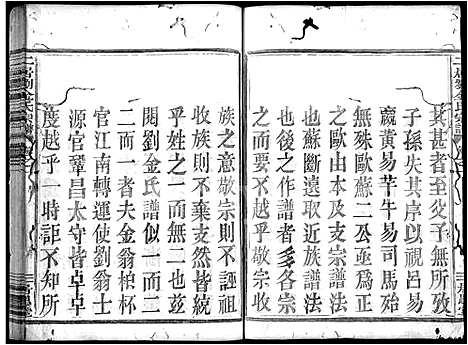 三居劉金氏宗譜
其甚者至父子無所攷
子孫失其序以呂易
嬴黃易芉牛易司馬殆
無殊歐蘇二公亟爲
之歐山本及支宗譜法
也蘇斷近族譜法
也後之作譜者
要不越乎敬宗收
族之意敬宗則不誣祖
收族則不棄支然皆統
乎姓之一而無二也茲
閱劉金氏譜似一而二
二而一者夫金翁杯
官江南轉運使劉翁士
源官鞏昌太守皆卓卓
度越乎一時詎不知所